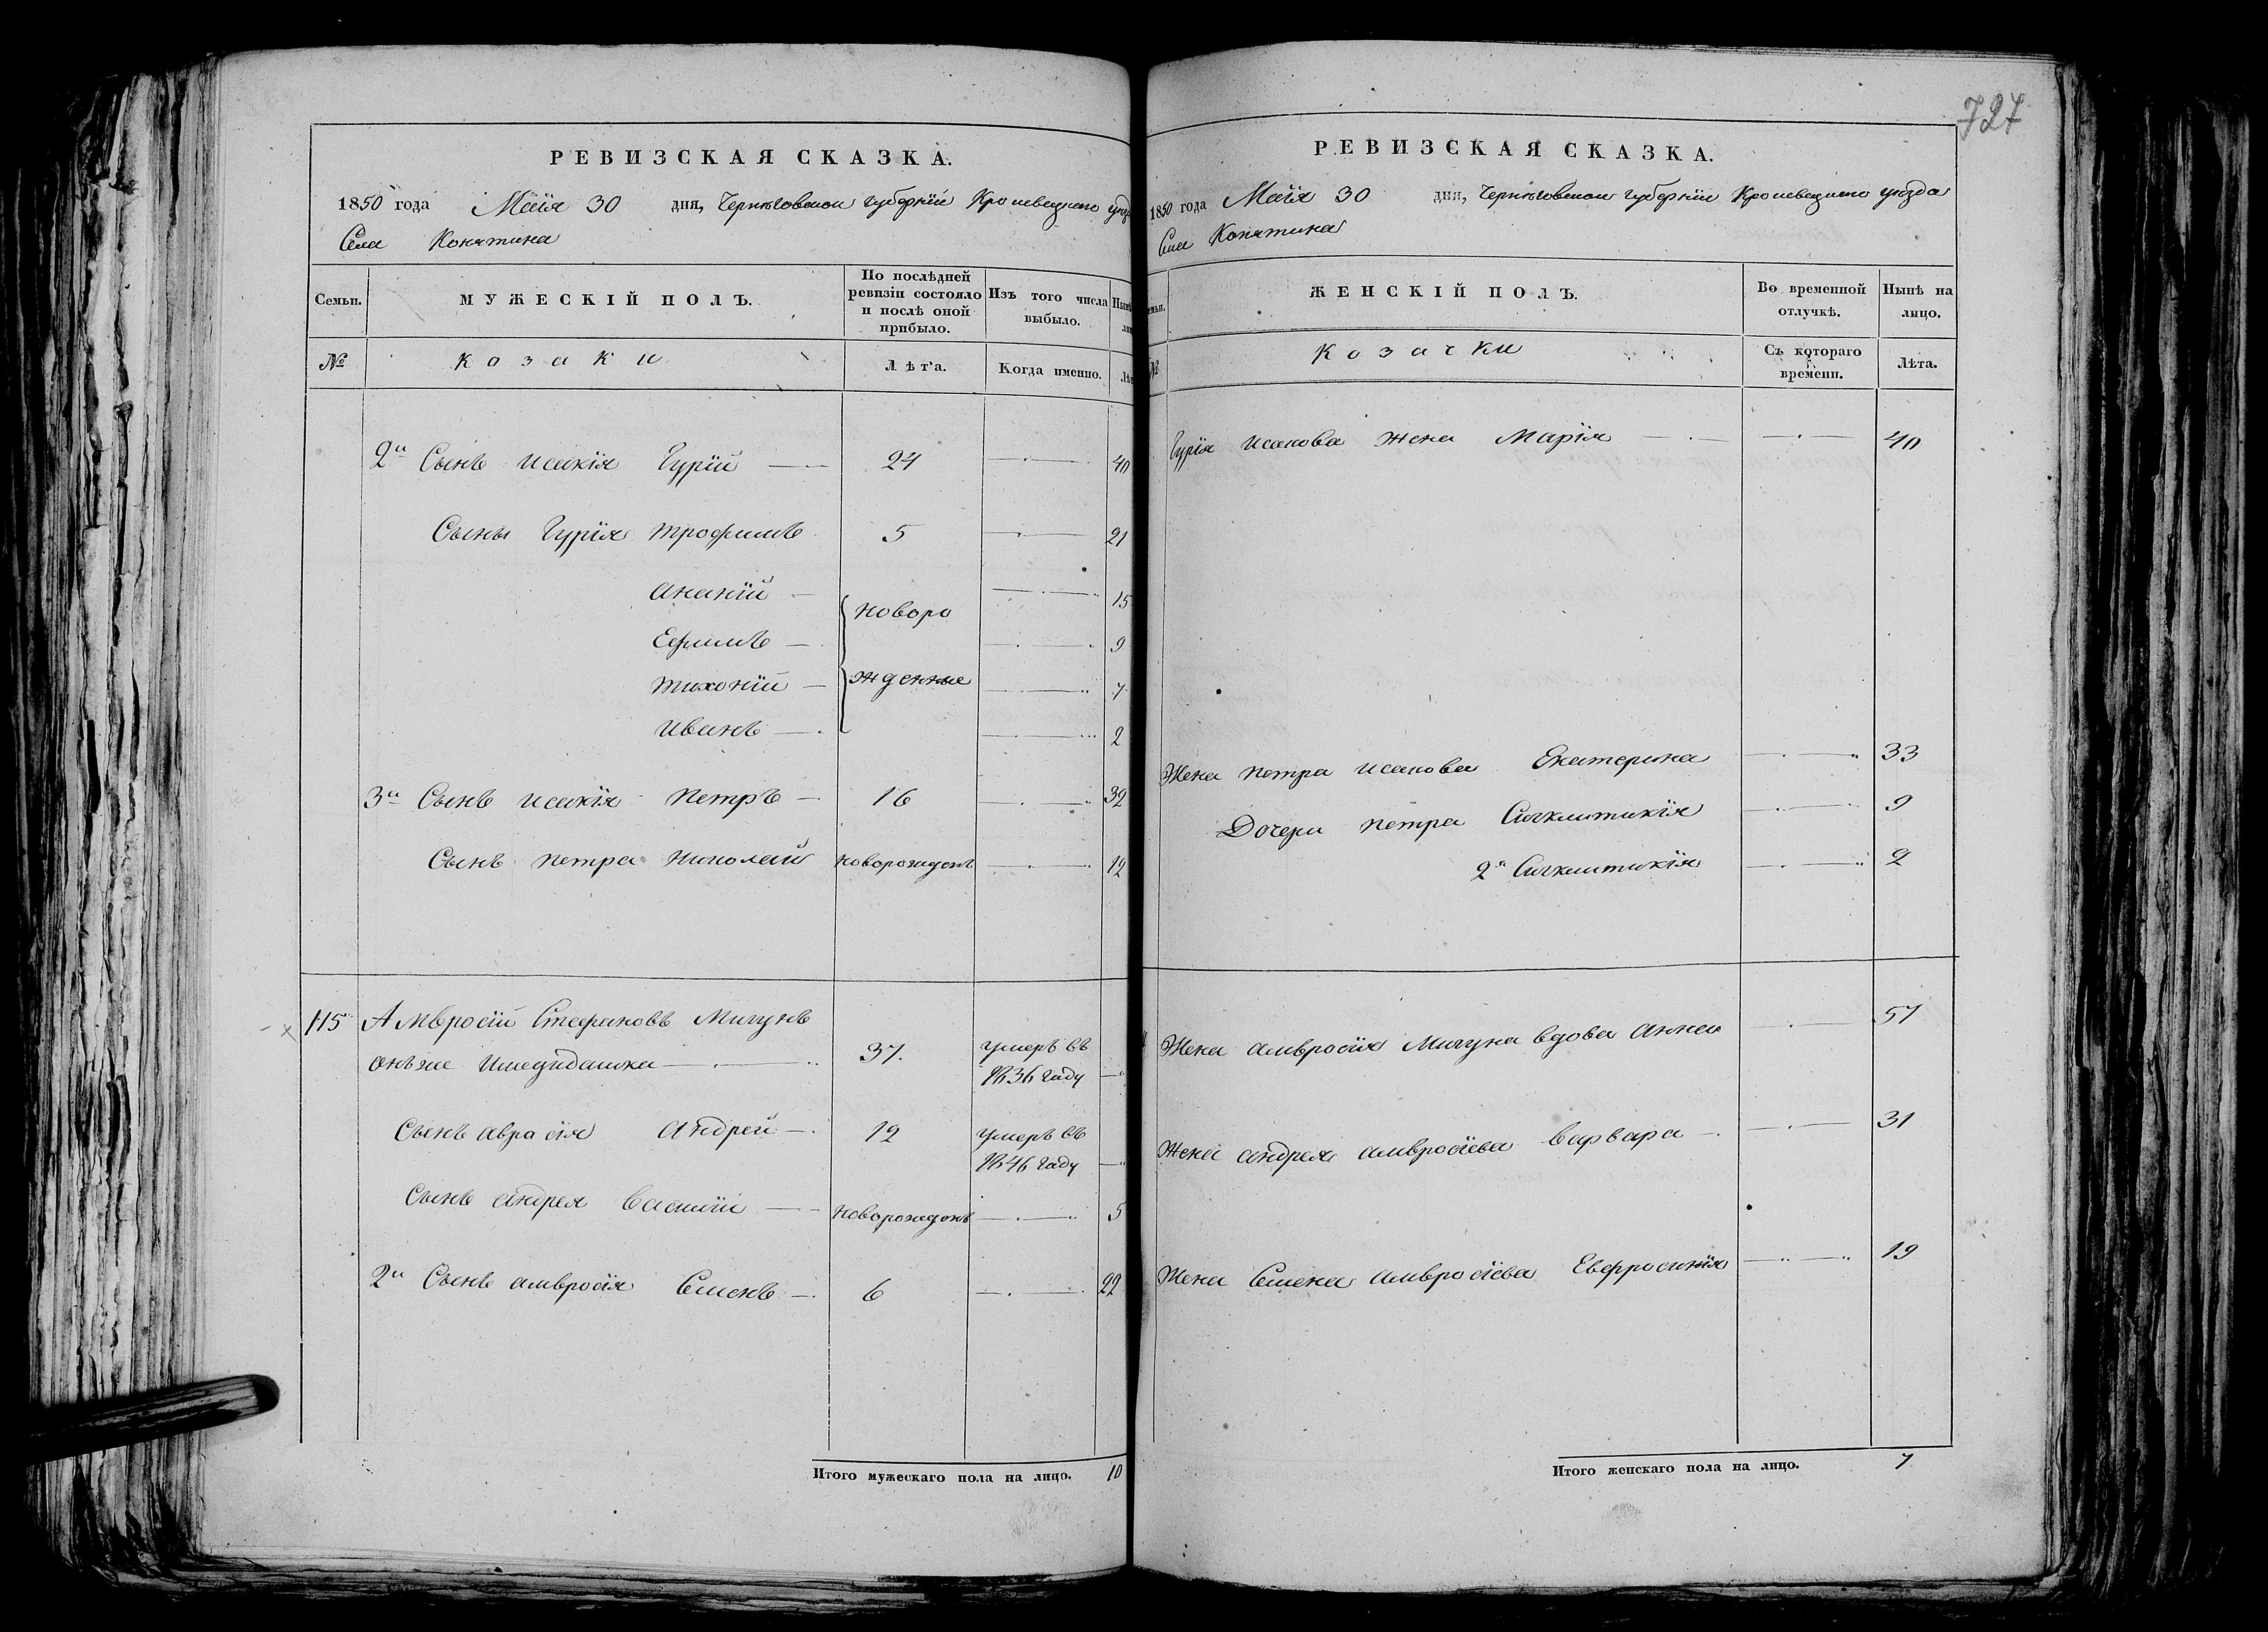 727
РЕВИЗСКАЯ СКАЗКА.
1850 года Маія 30 дня, Черниговской губерніи Кролевецкаго уѣзд
Села Конятина
Семьи. МУЖЕСКІЙ ПОЛЪ. По послѣдней ревизіи состояло и послѣ оной прибыло. Изъ того числа выбыло. Нынѣ
№ Козаки Лѣта. Когда именно. Лѣт
2й Сынъ Исакія Гурій — 24 — 40
Сыны Гурія Трофимъ 5 — 21
Ананій — новоро — 15
Ефимъ — 9
Тихоній — жденные — 7
Иванъ — 2
3й Сынъ Исакія Петръ — 16 — 32
Сынъ Петра Николай новорожденъ — 12
115 Амвросій Стефановъ Мигунъ
онъже 37. умеръ въ
1836 году —
Сынъ Авросія Андрей — 12 умеръ въ
1846 году —
Сынъ Андрея Василій — новорожденъ — 5
2й Сынъ Амвросія Семенъ — 6 — 22
Итого мужескаго пола на лицо. 10
РЕВИЗСКАЯ СКАЗКА.
1850 года Маія 30 дня, Черниговской губерніи Кролевецкаго уѣзда
Села Конятина
емьи. ЖЕНСКІЙ ПОЛЪ. Во временной отлучкѣ. Нынѣ на лицо.
№ Козачки Съ котораго времени. Лѣта.
Гурія Исакова жена Марія — — 40
Жена Петра Исакова Екатерина — 33
Дочери Петра Сигклитикія — 9
2я Сигклитикія — 2
Жена Амвросія Мигуна вдова Анна — 57
Жена Андрея Амвросіева Варвара — — 31
Жена Семена Амвросіева Евфросинія — 19
Итого женскаго пола на лицо. 7